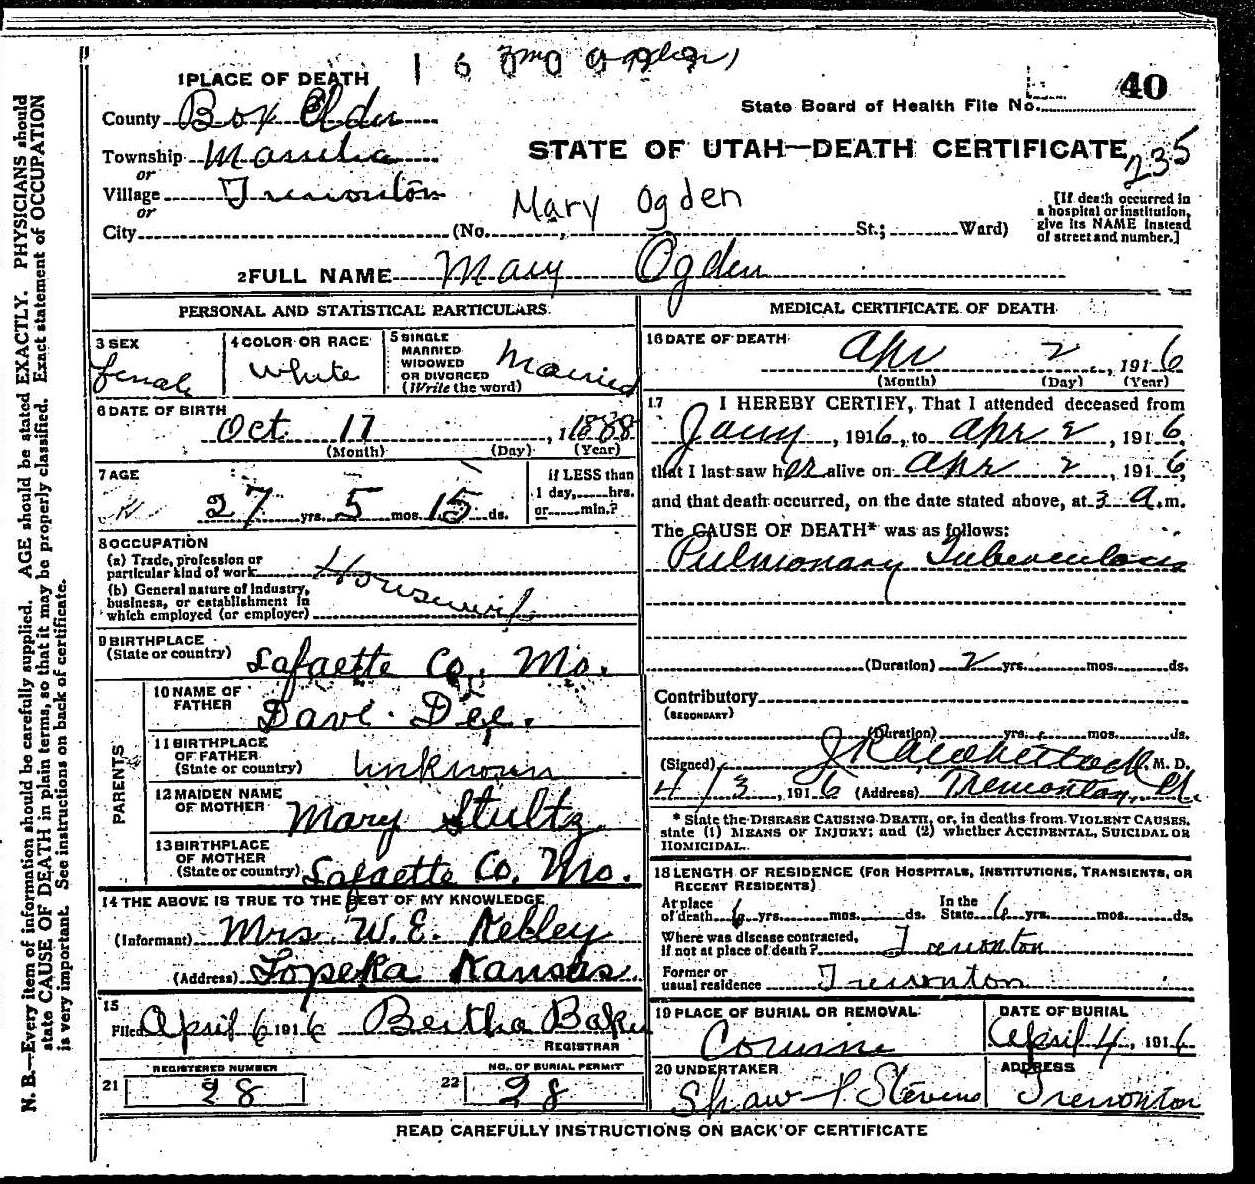 1 PLACE OF DEATH
State Board of Health File No. 40
County Box Elder
Township
or
Village Tremonton
or
City (No. St.; Ward)
STATE OF UTAH—DEATH CERTIFICATE
235
Mary Ogden
[If death occurred in
a hospital or institution,
give its NAME instead
of street and number.]
2 FULL NAME Mary Ogden
PERSONAL AND STATISTICAL PARTICULARS
3 SEX
female
4 COLOR OR RACE
White
5 SINGLE
MARRIED
WIDOWED
OR DIVORCED
(Write the word)
Married
6 DATE OF BIRTH
Oct. 17, 1888
(Month) (Day) (Year)
7 AGE
27 yrs. 5 mos. 15 ds.
if LESS than
1 day,......hrs.
or......min.?
8 OCCUPATION
(a) Trade, profession or
particular kind of work Housewife
(b) General nature of industry,
business, or establishment in
which employed (or employer)
9 BIRTHPLACE
(State or country) Lafaette Co. Mo.
PARENTS
10 NAME OF
FATHER Dave Dee.
11 BIRTHPLACE
OF FATHER
(State or country) Unknown
12 MAIDEN NAME
OF MOTHER Mary Stultz
13 BIRTHPLACE
OF MOTHER
(State or country) Lafaette Co. Mo.
14 THE ABOVE IS TRUE TO THE BEST OF MY KNOWLEDGE
(Informant) Mrs. W. E. Kelley
(Address) Topeka Kansas
15
Filed April 6 1916 Bertha Baker
REGISTRAR
REGISTERED NUMBER
21 28
NO. OF BURIAL PERMIT
22 28
MEDICAL CERTIFICATE OF DEATH
16 DATE OF DEATH
Apr 2, 1916
(Month) (Day) (Year)
17 I HEREBY CERTIFY, That I attended deceased from
Jany, 1916, to Apr 2, 1916,
that I last saw her alive on Apr 2, 1916,
and that death occurred, on the date stated above, at 3 a.m.
The CAUSE OF DEATH* was as follows:
Pulmonary Tuberculosis
(Duration) 2 yrs. mos. ds.
Contributory
(SECONDARY)
(Duration) yrs. mos. ds.
(Signed) M. D.
4/3, 1916 (Address) Tremonton, U.
* State the DISEASE CAUSING DEATH, or, in deaths from VIOLENT CAUSES,
state (1) MEANS OF INJURY; and (2) whether ACCIDENTAL, SUICIDAL OR
HOMICIDAL.
18 LENGTH OF RESIDENCE (FOR HOSPITALS, INSTITUTIONS, TRANSIENTS, OR
RECENT RESIDENTS)
At place
of death 6 yrs. mos. ds.
In the
State 6 yrs. mos. ds.
Where was disease contracted,
if not at place of death? Tremonton
Former or
usual residence Tremonton
19 PLACE OF BURIAL OR REMOVAL
Corinne
DATE OF BURIAL
April 4, 1916
20 UNDERTAKER
Shaw & Stevens
ADDRESS
Tremonton
READ CAREFULLY INSTRUCTIONS ON BACK OF CERTIFICATE
N. B.—Every item of information should be carefully supplied. AGE should be stated EXACTLY. PHYSICIANS should
state CAUSE OF DEATH in plain terms, so that it may be properly classified. Exact statement of OCCUPATION
is very important. See instructions on back of certificate.